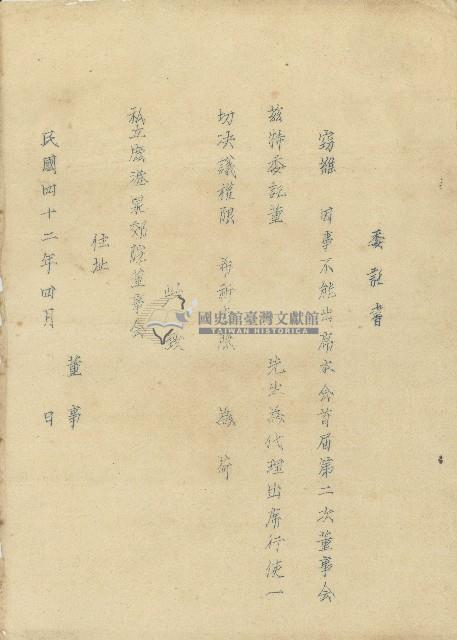 委託書
竊 因事不能出席本會首屆第二次董事會
茲特委託董 先生為代理出席行使一
切決議權限 希 為荷
此致
私立 董事會
住址
董事
民國四十二年四月 日
國史館臺灣文獻館
TAIWAN HISTORICA